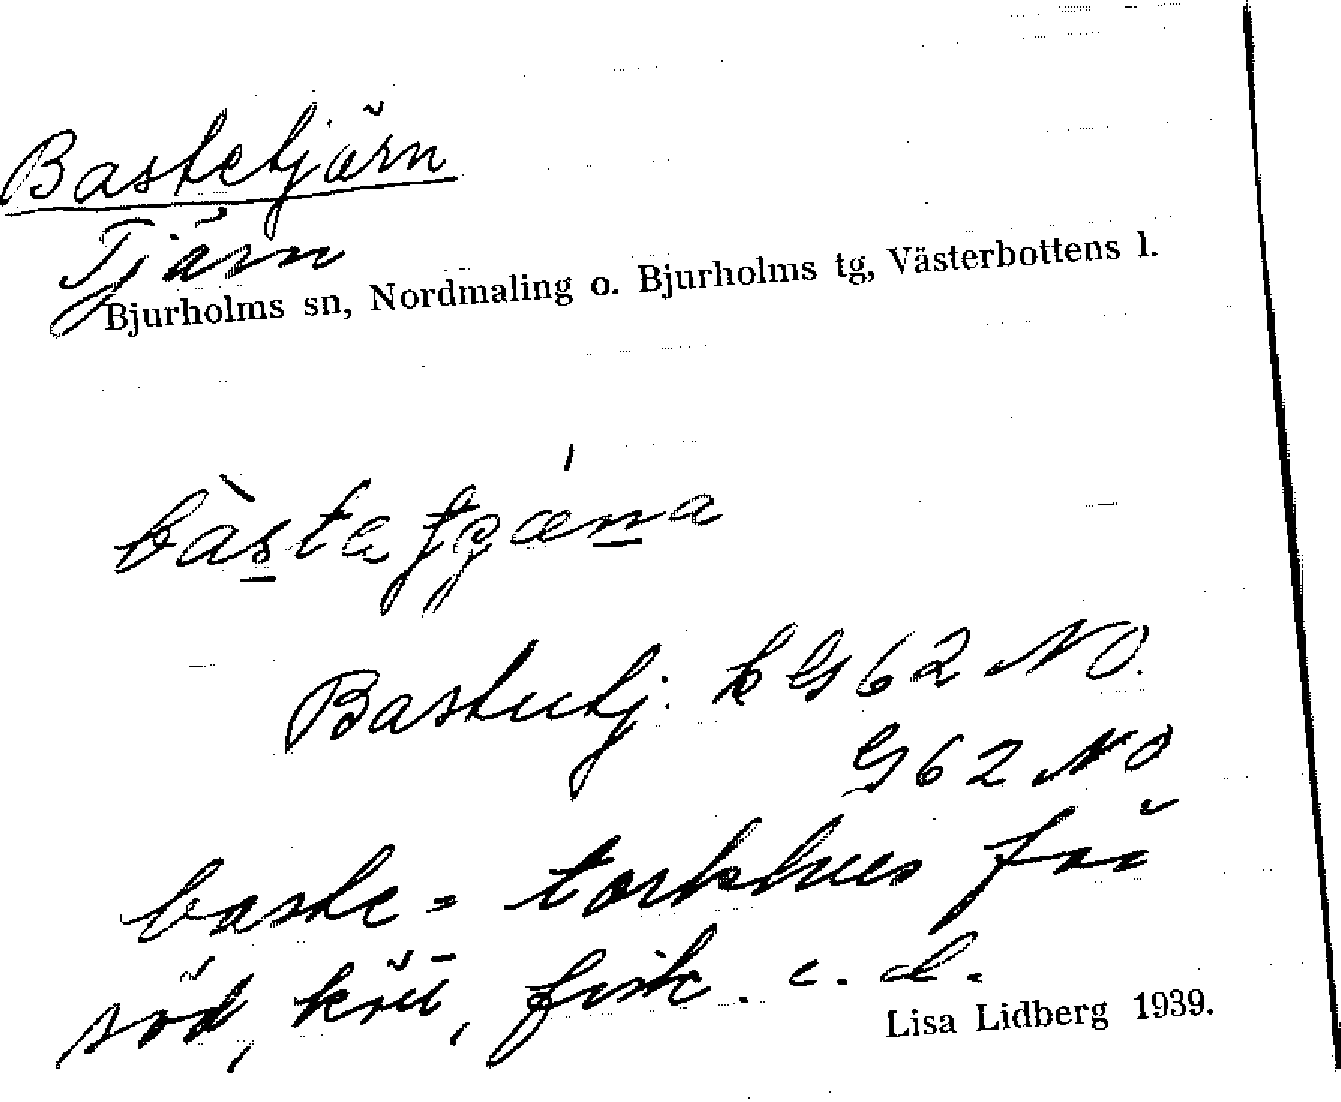 Bastetjärn
Tjärn
Bjurholms sn, Nordmaling o. Bjurholms tg, Västerbottens l.
Bastutj. k G 62 NO.
G 62 NO
baste = torkhus för
säd, kött, fisk. e. d.
Lisa Lidberg 1939.